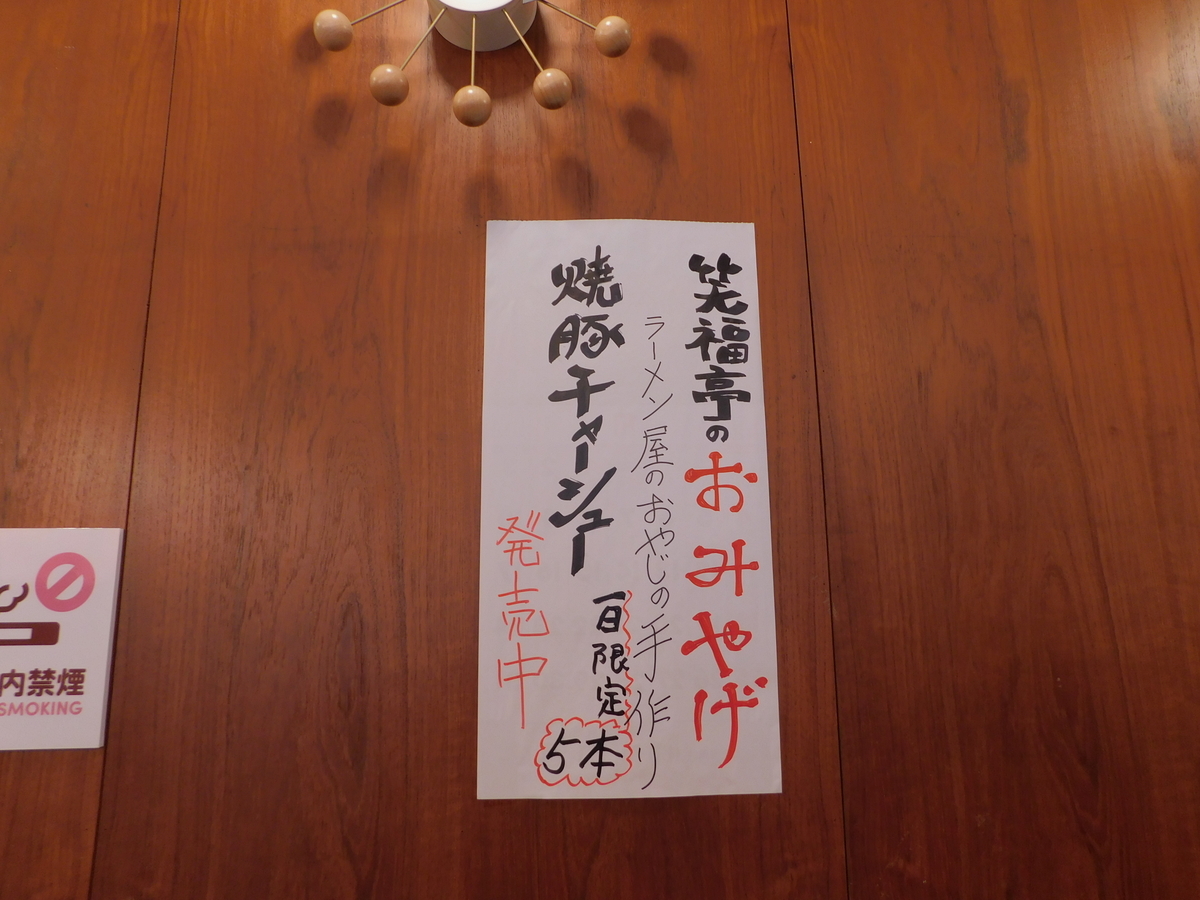 笑福亭のおみやげ
ラーメン屋のおやじの手作り
焼豚チャーシュー
一日限定
5本
発売中
内禁煙
SMOKING